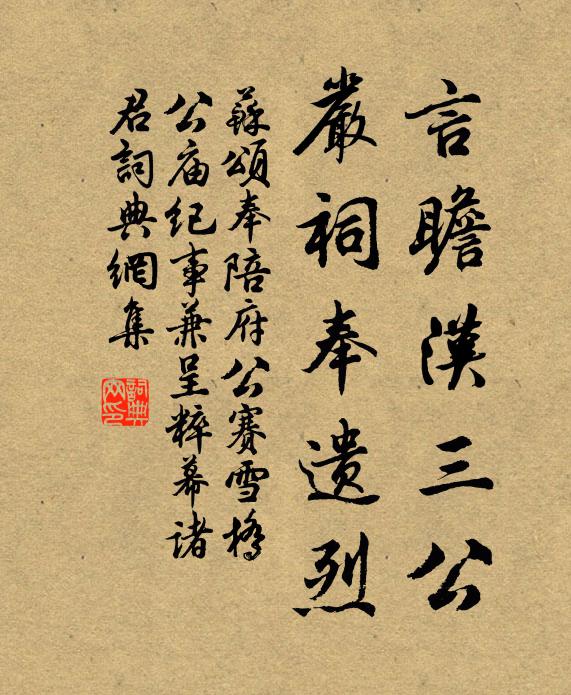 言瞻漢三公
嚴祠奉遺烈
蘇頌奉陪府公賽雪橋
公庙纪事兼呈粹幕诸
君詞典網集
詞典网印